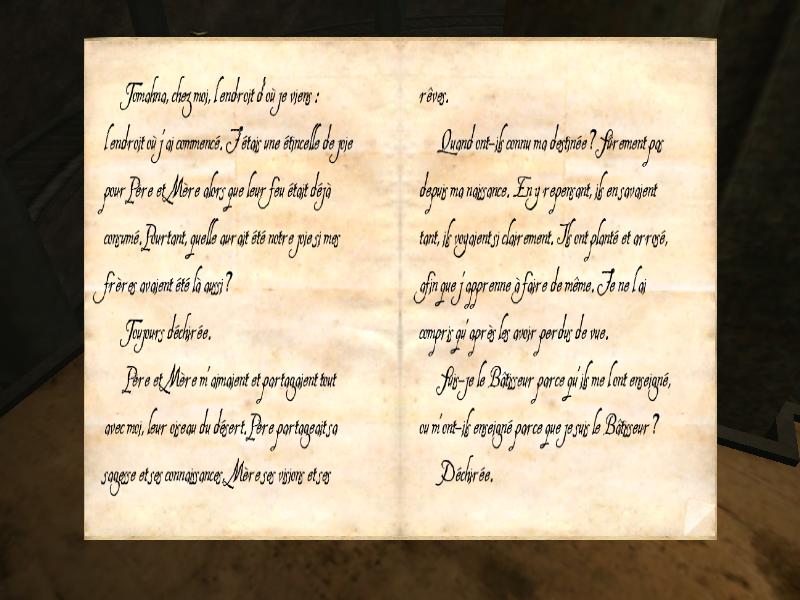 Tomahna, chez moi, l'endroit d'où je viens :
l'endroit où j'ai commencé. J'étais une étincelle de joie
pour Père et Mère alors que leur feu était déjà
consumé. Pourtant, quelle aurait été notre joie si mes
frères avaient été là aussi ?
Toujours déchirée.
Père et Mère m'aimaient et partageaient tout
avec moi, leur oiseau du désert. Père partageait sa
sagesse et ses connaissances, Mère ses visions et ses
rêves.
Quand ont-ils connu ma destinée ? Sûrement pas
depuis ma naissance. En y repensant, ils en savaient
tant, ils voyaient si clairement. Ils ont planté et arrosé,
afin que j'apprenne à faire de même. Je ne l'ai
compris qu'après les avoir perdus de vue.
Suis-je le Bâtisseur parce qu'ils me l'ont enseigné,
ou m'ont-ils enseigné parce que je suis le Bâtisseur ?
Déchirée.